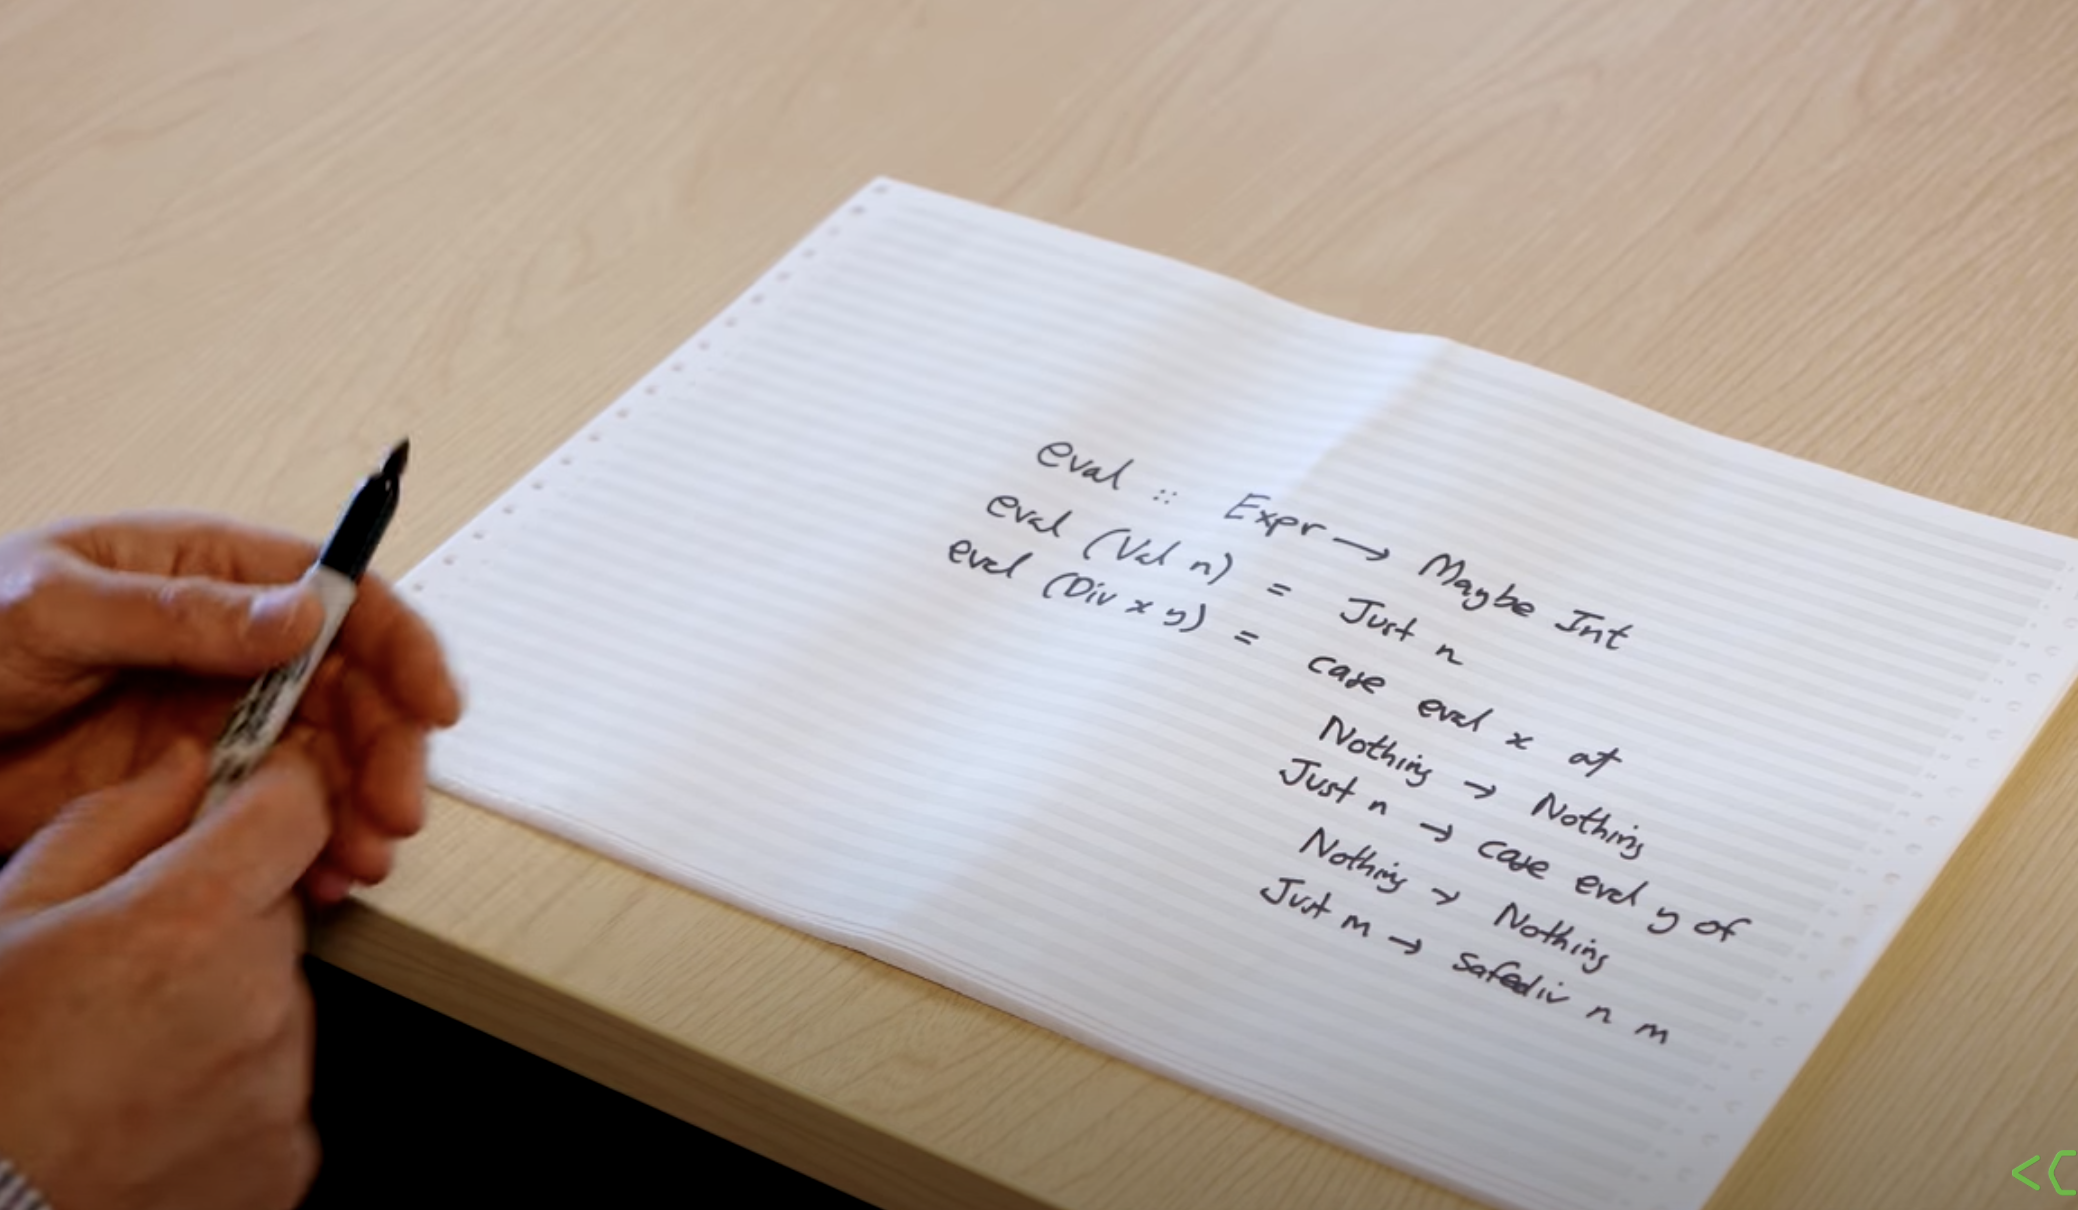 eval :: Expr → Maybe Int
eval (Val n) = Just n
eval (Div x y) = case eval x of
Nothing → Nothing
Just n → case eval y of
Nothing → Nothing
Just m → safediv n m
<C